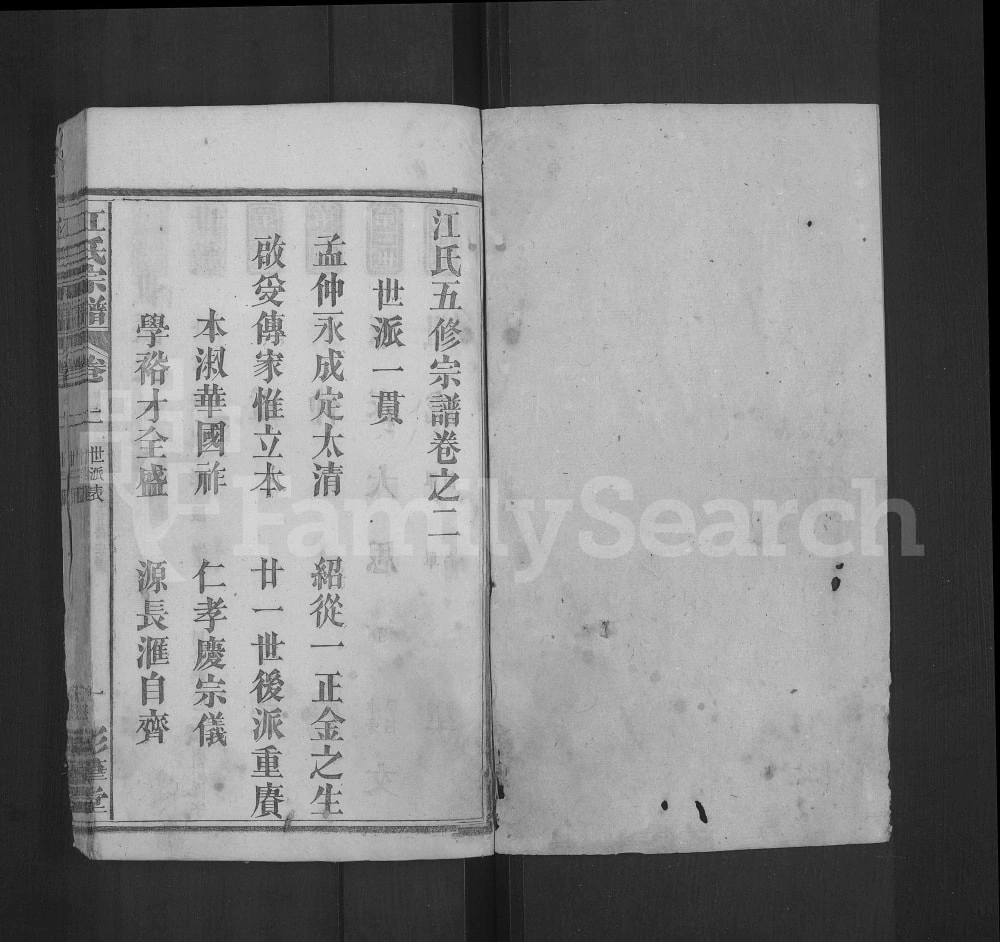 江氏五修宗譜卷之二
世派一貫
孟仲永成定太清 紹從一正金之生
啟受傳家惟立本 廿一世後派重賡
本淑華國祚 仁孝慶宗儀
學裕才全盛 源長滙自齊
江氏宗譜 卷二 世派 一
FamilySearch